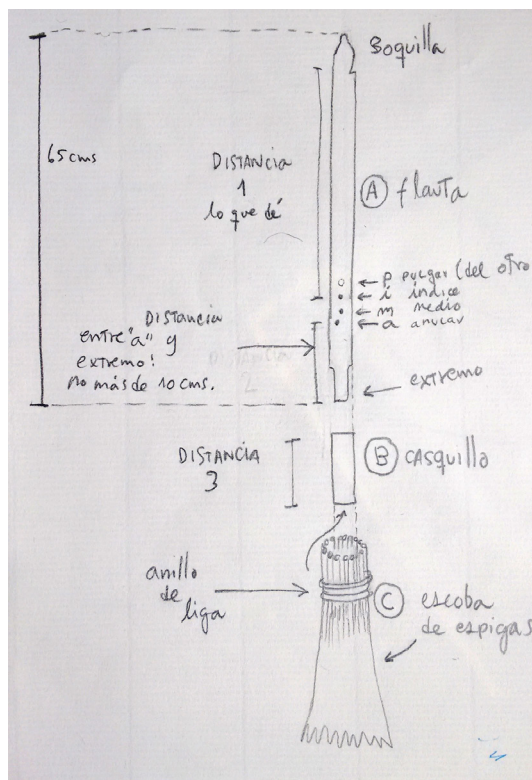 Boquilla
65 cms
DISTANCIA
1
lo que dé
A flauta
← p pulgar (del otro
← i índice
← m medio
← a anular
DISTANCIA
entre "a" y
extremo:
no más de 10 cms.
DISTANCIA
2
extremo
DISTANCIA
3
B CASQUILLO
anillo
de
liga
C escoba
de espigas